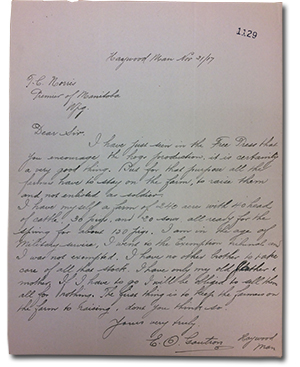 1129
Haywood Man Nov 21/17
T. C. Norris
Premier of Manitoba
Wpg
Dear Sir.
I have just seen in the Free Press that
you encourage the hog production, it is certainly
a very good thing. But for that purpose all the
farmers have to stay on the farm, to raise them
and not enlisted as soldier
I have myself a farm of 240 acres with 40 head
of cattle, 30 pigs, and 20 sows all ready for the
spring for about 150 pigs. I am in the age of
Military service, I went to the Exemption Tribunal and
I was not exempted. I have no other brother to take
care of all that stock. I have only my old father &
mother. If I have to go I will be obliged to sell them
all for nothing. The first thing is to keep the farmers on
the farm to raising, dont you think so.
Yours very truly
Haywood
Man